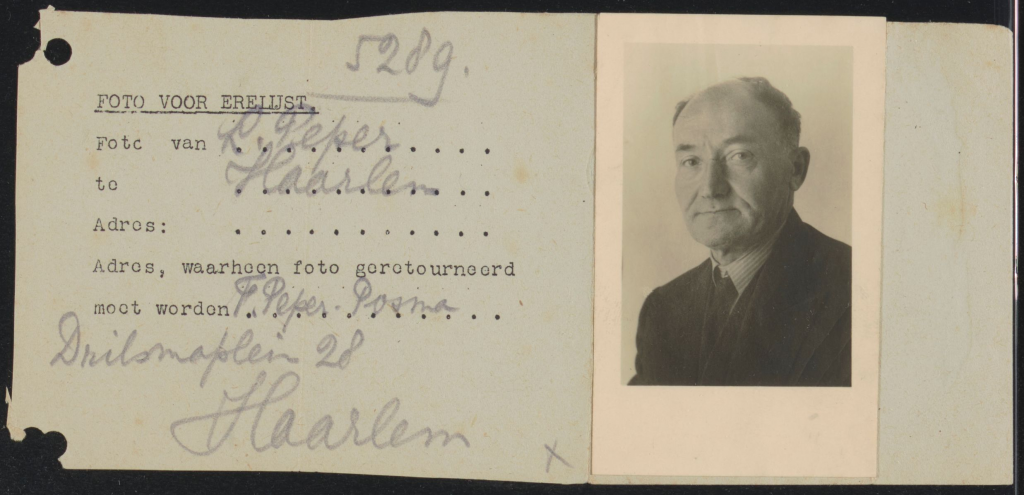 5289.
FOTO VOOR ERELIJST.
Foto van L. Peper
te Haarlem
Adres: . . . . . . . . . . .
Adres, waarheen foto geretourneerd
moet worden F. Peper-Posma
Drilsmaplein 28
Haarlem
x